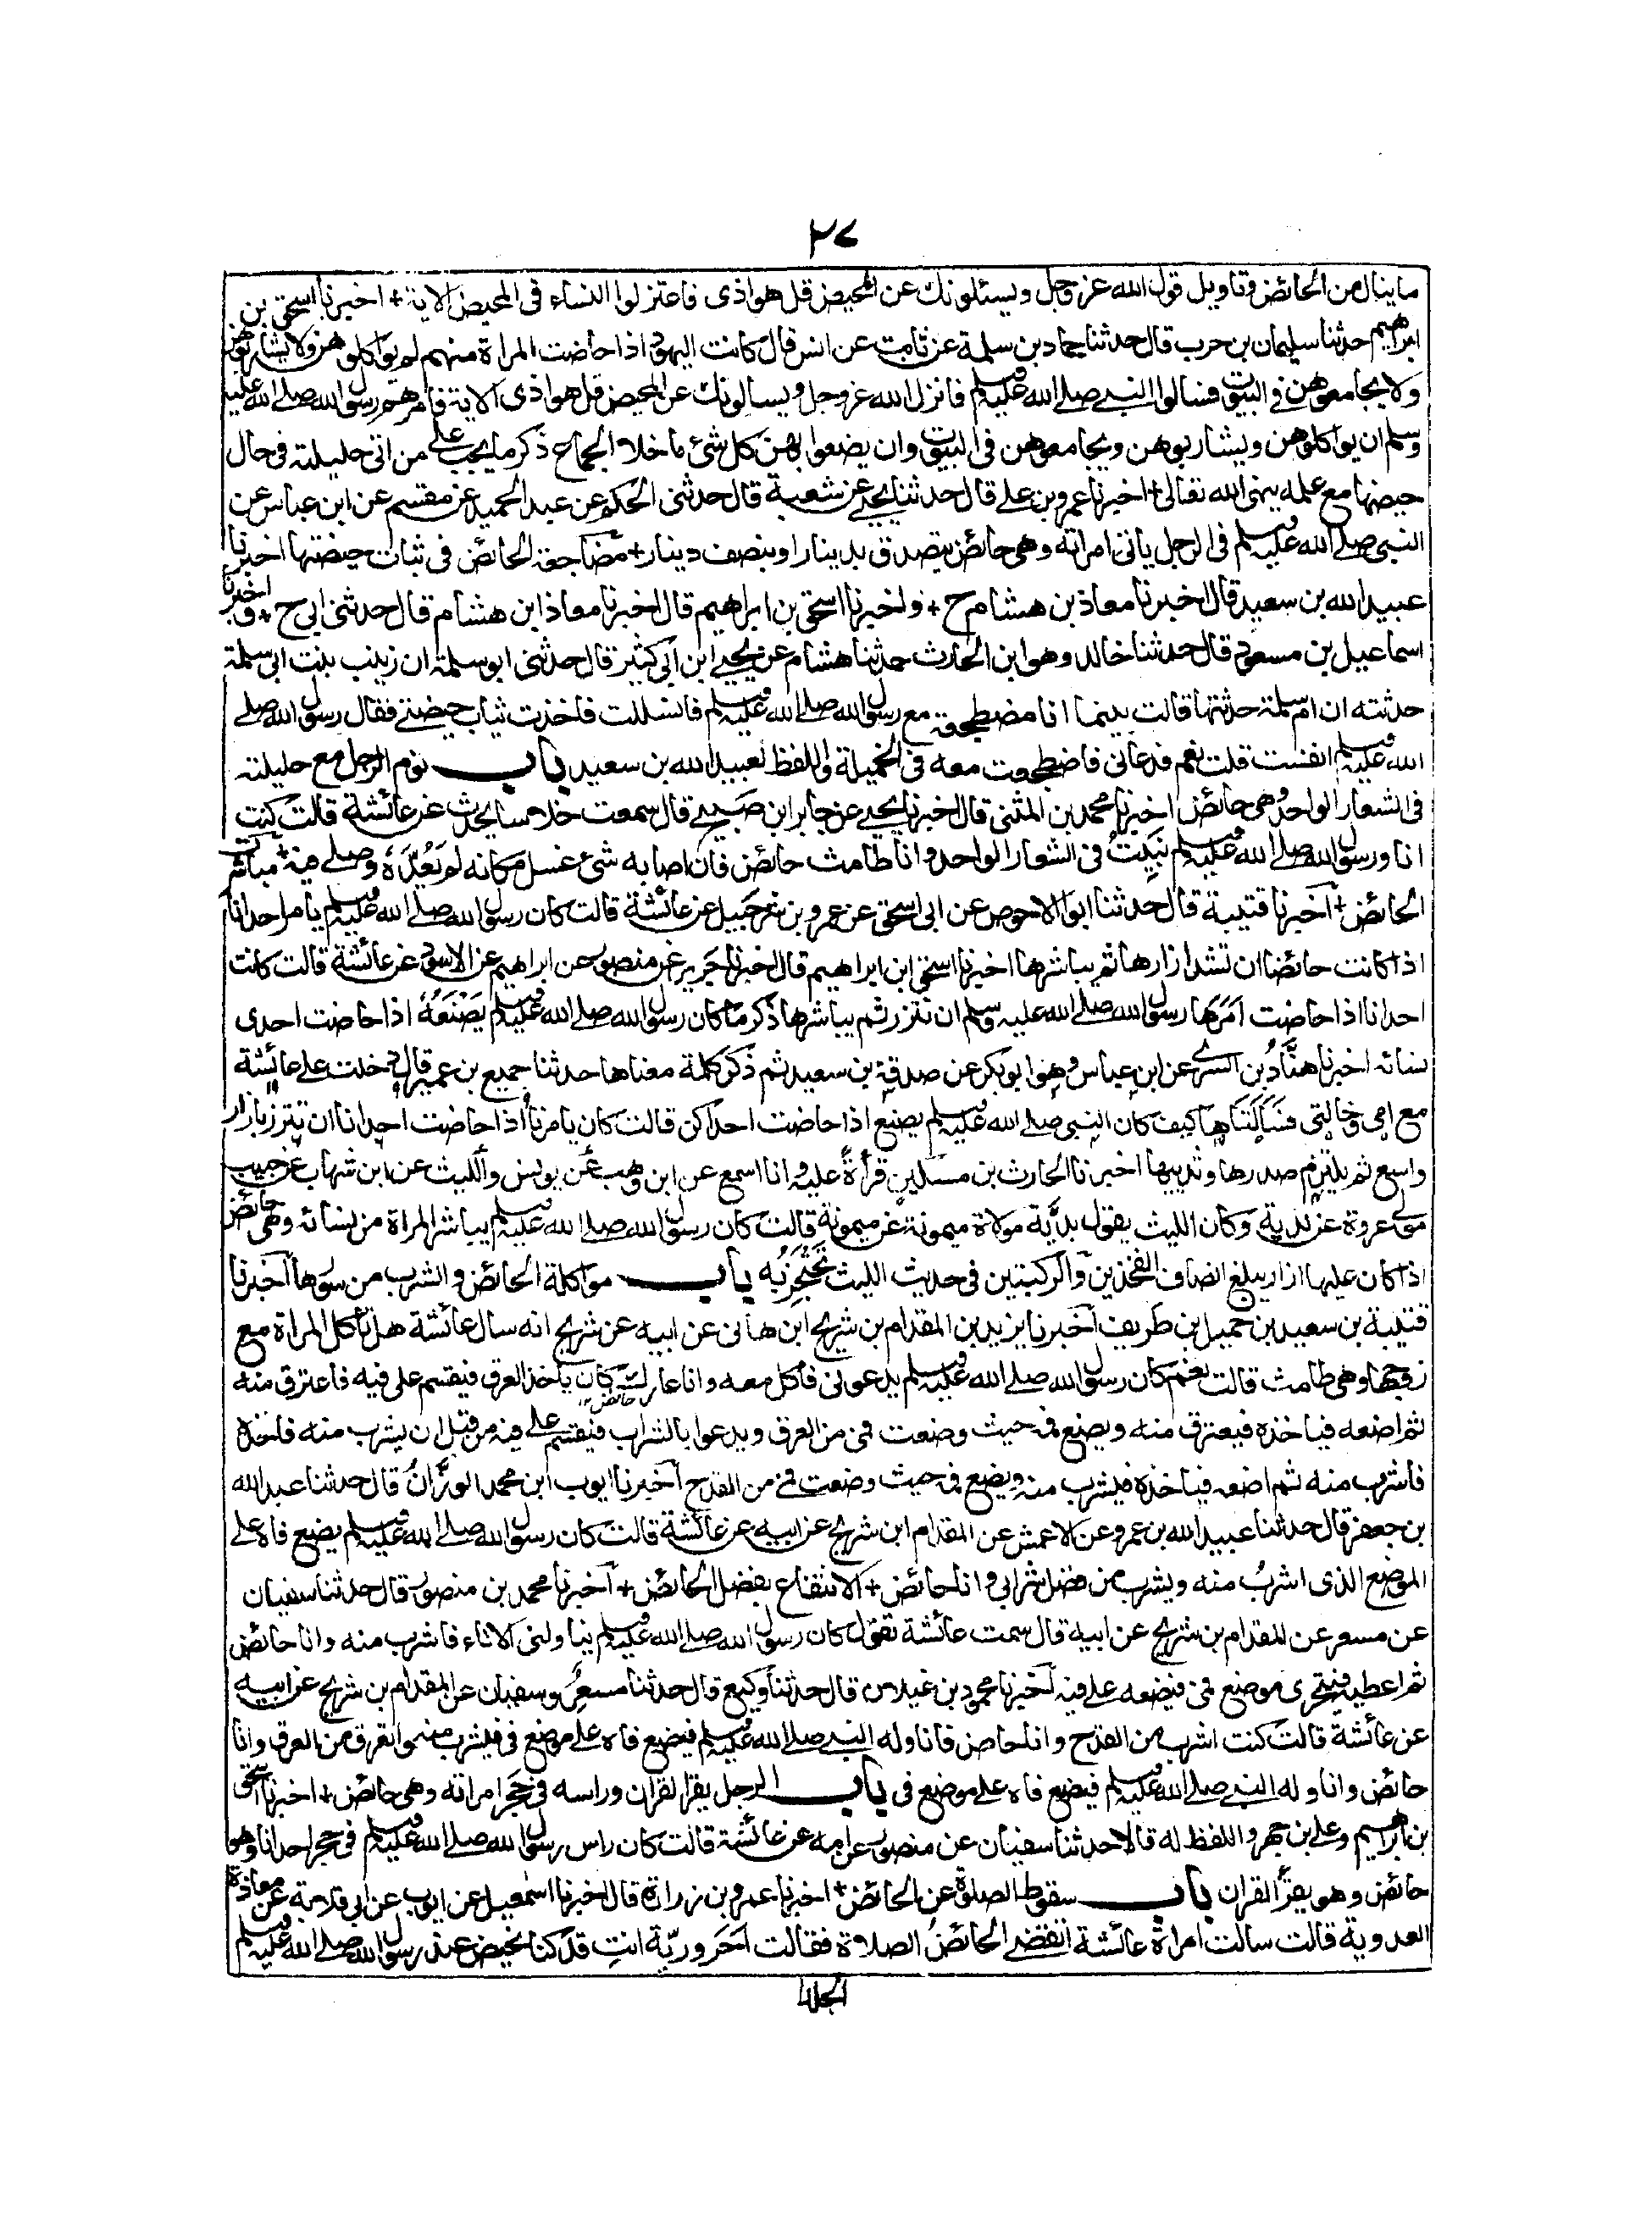 ٢٧
ما ينال من الحائض وتاويل قول الله عز وجل ويسئلونك عن المحيض قل هو اذى فاعتزلوا النساء فى المحيض الاية + اخبرنا اسحق بن
ابراهيم حدثنا سليمان بن حرب قال حدثنا حماد بن سلمة عن ثابت عن انس قال كانت اليهود اذا حاضت المراة منهم لم يواكلوهن ولا يشاربوهن
ولا يجامعوهن فى البيوت فسالوا النبى صلى الله عليه وسلم فانزل الله عز وجل ويسالونك عن المحيض قل هو اذى الاية فامرهم رسول الله صلى الله عليه
وسلم ان يواكلوهن ويشاربوهن ويجامعوهن فى البيوت وان يضعوا بهن كل شئ ما خلا الجماع ذكر ما يجب على من اتى حليلته فى حال
حيضها مع علمه بنهى الله تعالى + اخبرنا عمرو بن على قال حدثنا يحيى عن شعبة قال حدثنى الحكم عن عبد الحميد عن مقسم عن ابن عباس عن
النبى صلى الله عليه وسلم فى الرجل ياتى امراته وهى حائض يتصدق بدينار او بنصف دينار + مضاجعة الحائض فى ثياب حيضتها اخبرنا
عبيد الله بن سعيد قال اخبرنا معاذ بن هشام ح + واخبرنا اسحق بن ابراهيم قال اخبرنا معاذ ابن هشام قال حدثنى ابى ح + واخبرنا
اسماعيل بن مسعود قال حدثنا خالد وهو ابن الحارث حدثنا هشام عن يحيى ابن ابى كثير قال حدثنى ابو سلمة ان زينب بنت ابى سلمة
حدثته ان ام سلمة حدثتها قالت بينما انا مضطجعة مع رسول الله صلى الله عليه وسلم فانسللت فاخذت ثياب حيضتى فقال رسول الله صلى
الله عليه وسلم انفست قلت نعم فدعانى فاضطجعت معه فى الخميلة واللفظ لعبيد الله بن سعيد باب نوم الرجل مع حليلته
فى الشعار الواحد وهى حائض اخبرنا محمد بن المثنى قال اخبرنا يحيى عن جابر ابن صبيح قال سمعت خلاسا يحدث عن عائشة قالت كنت
انا ورسول الله صلى الله عليه وسلم نبيت فى الشعار الواحد وانا طامث حائض فان اصابه شئ غسل مكانه لم يعده وصلى فيه + مباشرة
الحائض + اخبرنا قتيبة قال حدثنا ابو الاحوص عن ابى اسحق عن عمرو بن شرحبيل عن عائشة قالت كان رسول الله صلى الله عليه وسلم يامر احدانا
اذا كانت حائضا ان تشد ازارها ثم يباشرها اخبرنا اسحق ابن ابراهيم قال اخبرنا جرير عن منصور عن ابراهيم عن الاسود عن عائشة قالت كانت
احدانا اذا حاضت امرها رسول الله صلى الله عليه وسلم ان تتزر ثم يباشرها ذكر ما كان رسول الله صلى الله عليه وسلم يصنعه اذا حاضت احدى
نسائه اخبرنا هناد بن السرى عن ابن عياش وهو ابو بكر عن صدقة بن سعيد ثم ذكر كلمة معناها حدثنا جميع بن عمير قال دخلت على عائشة
مع امى وخالتى فسالتاها كيف كان النبى صلى الله عليه وسلم يصنع اذا حاضت احداكن قالت كان يامرنا اذا حاضت احدانا ان تتزر بازار
واسع ثم يلتزم صدرها وثدييها اخبرنا الحارث بن مسكين قرأة عليه وانا اسمع عن ابن وهب عن يونس والليث عن ابن شهاب عن حبيب
مولى عروة عن ندبة وكان الليث يقول بدية مولاة ميمونة عن ميمونة قالت كان رسول الله صلى الله عليه وسلم يباشر المراة من نسائه وهى حائض
اذا كان عليها ازار يبلغ انصاف الفخذين والركبتين فى حديث الليث تحتجز به باب مواكلة الحائض والشرب من سورها اخبرنا
قتيبة بن سعيد بن جميل بن طريف اخبرنا يزيد بن المقدام بن شريح ابن هانى عن ابيه عن شريح انه سال عائشة هل تاكل المراة مع
زوجها وهى طامث قالت نعم كان رسول الله صلى الله عليه وسلم يدعونى فآكل معه وانا عارك كان ياخذ العرق فيقسم على فيه فاعترق منه
حائض
ثم اضعه فياخذه فيعترق منه ويضع فمه حيث وضعت فمى من العرق ويدعوا بالشراب فيقسم على فيه من قبل ان يشرب منه فاخذه
فاشرب منه ثم اضعه فياخذه فيشرب منه ويضع فمه حيث وضعت فمى من القدح اخبرنا ايوب ابن محمد الوزان قال حدثنا عبد الله
بن جعفر قال حدثنا عبيد الله بن عمرو عن الاعمش عن المقدام ابن شريح عن ابيه عن عائشة قالت كان رسول الله صلى الله عليه وسلم يضع فاه على
الموضع الذى اشرب منه ويشرب من فضل شرابى وانا حائض + الانتفاع بفضل الحائض + اخبرنا محمد بن منصور قال حدثنا سفيان
عن مسعر عن المقدام بن شريح عن ابيه قال سمعت عائشة تقول كان رسول الله صلى الله عليه وسلم يناولنى الاناء فاشرب منه وانا حائض
ثم اعطيه فيتحرى موضع فمى فيضعه على فيه اخبرنا محمود بن غيلان قال حدثنا وكيع قال حدثنا مسعر وسفيان عن المقدام بن شريح عن ابيه
عن عائشة قالت كنت اشرب من القدح وانا حائض فاناوله النبى صلى الله عليه وسلم فيضع فاه على موضع فى فيشرب منه واتعرق من العرق وانا
حائض واناوله النبى صلى الله عليه وسلم فيضع فاه على موضع فى باب الرجل يقرا القران وراسه فى حجر امراته وهى حائض + اخبرنا اسحق
بن ابراهيم وعلى بن حجر واللفظ له قالا حدثنا سفيان عن منصور عن امه عن عائشة قالت كان راس رسول الله صلى الله عليه وسلم فى حجر احدانا وهو
حائض وهو يقرأ القران باب سقوط الصلوة عن الحائض + اخبرنا عمرو بن زرارة قال اخبرنا اسمعيل عن ايوب عن ابى قلابة عن معاذة
العدوية قالت سالت امراة عائشة اتقضى الحائض الصلاة فقالت احرورية انت قد كنا نحيض عند رسول الله صلى الله عليه وسلم